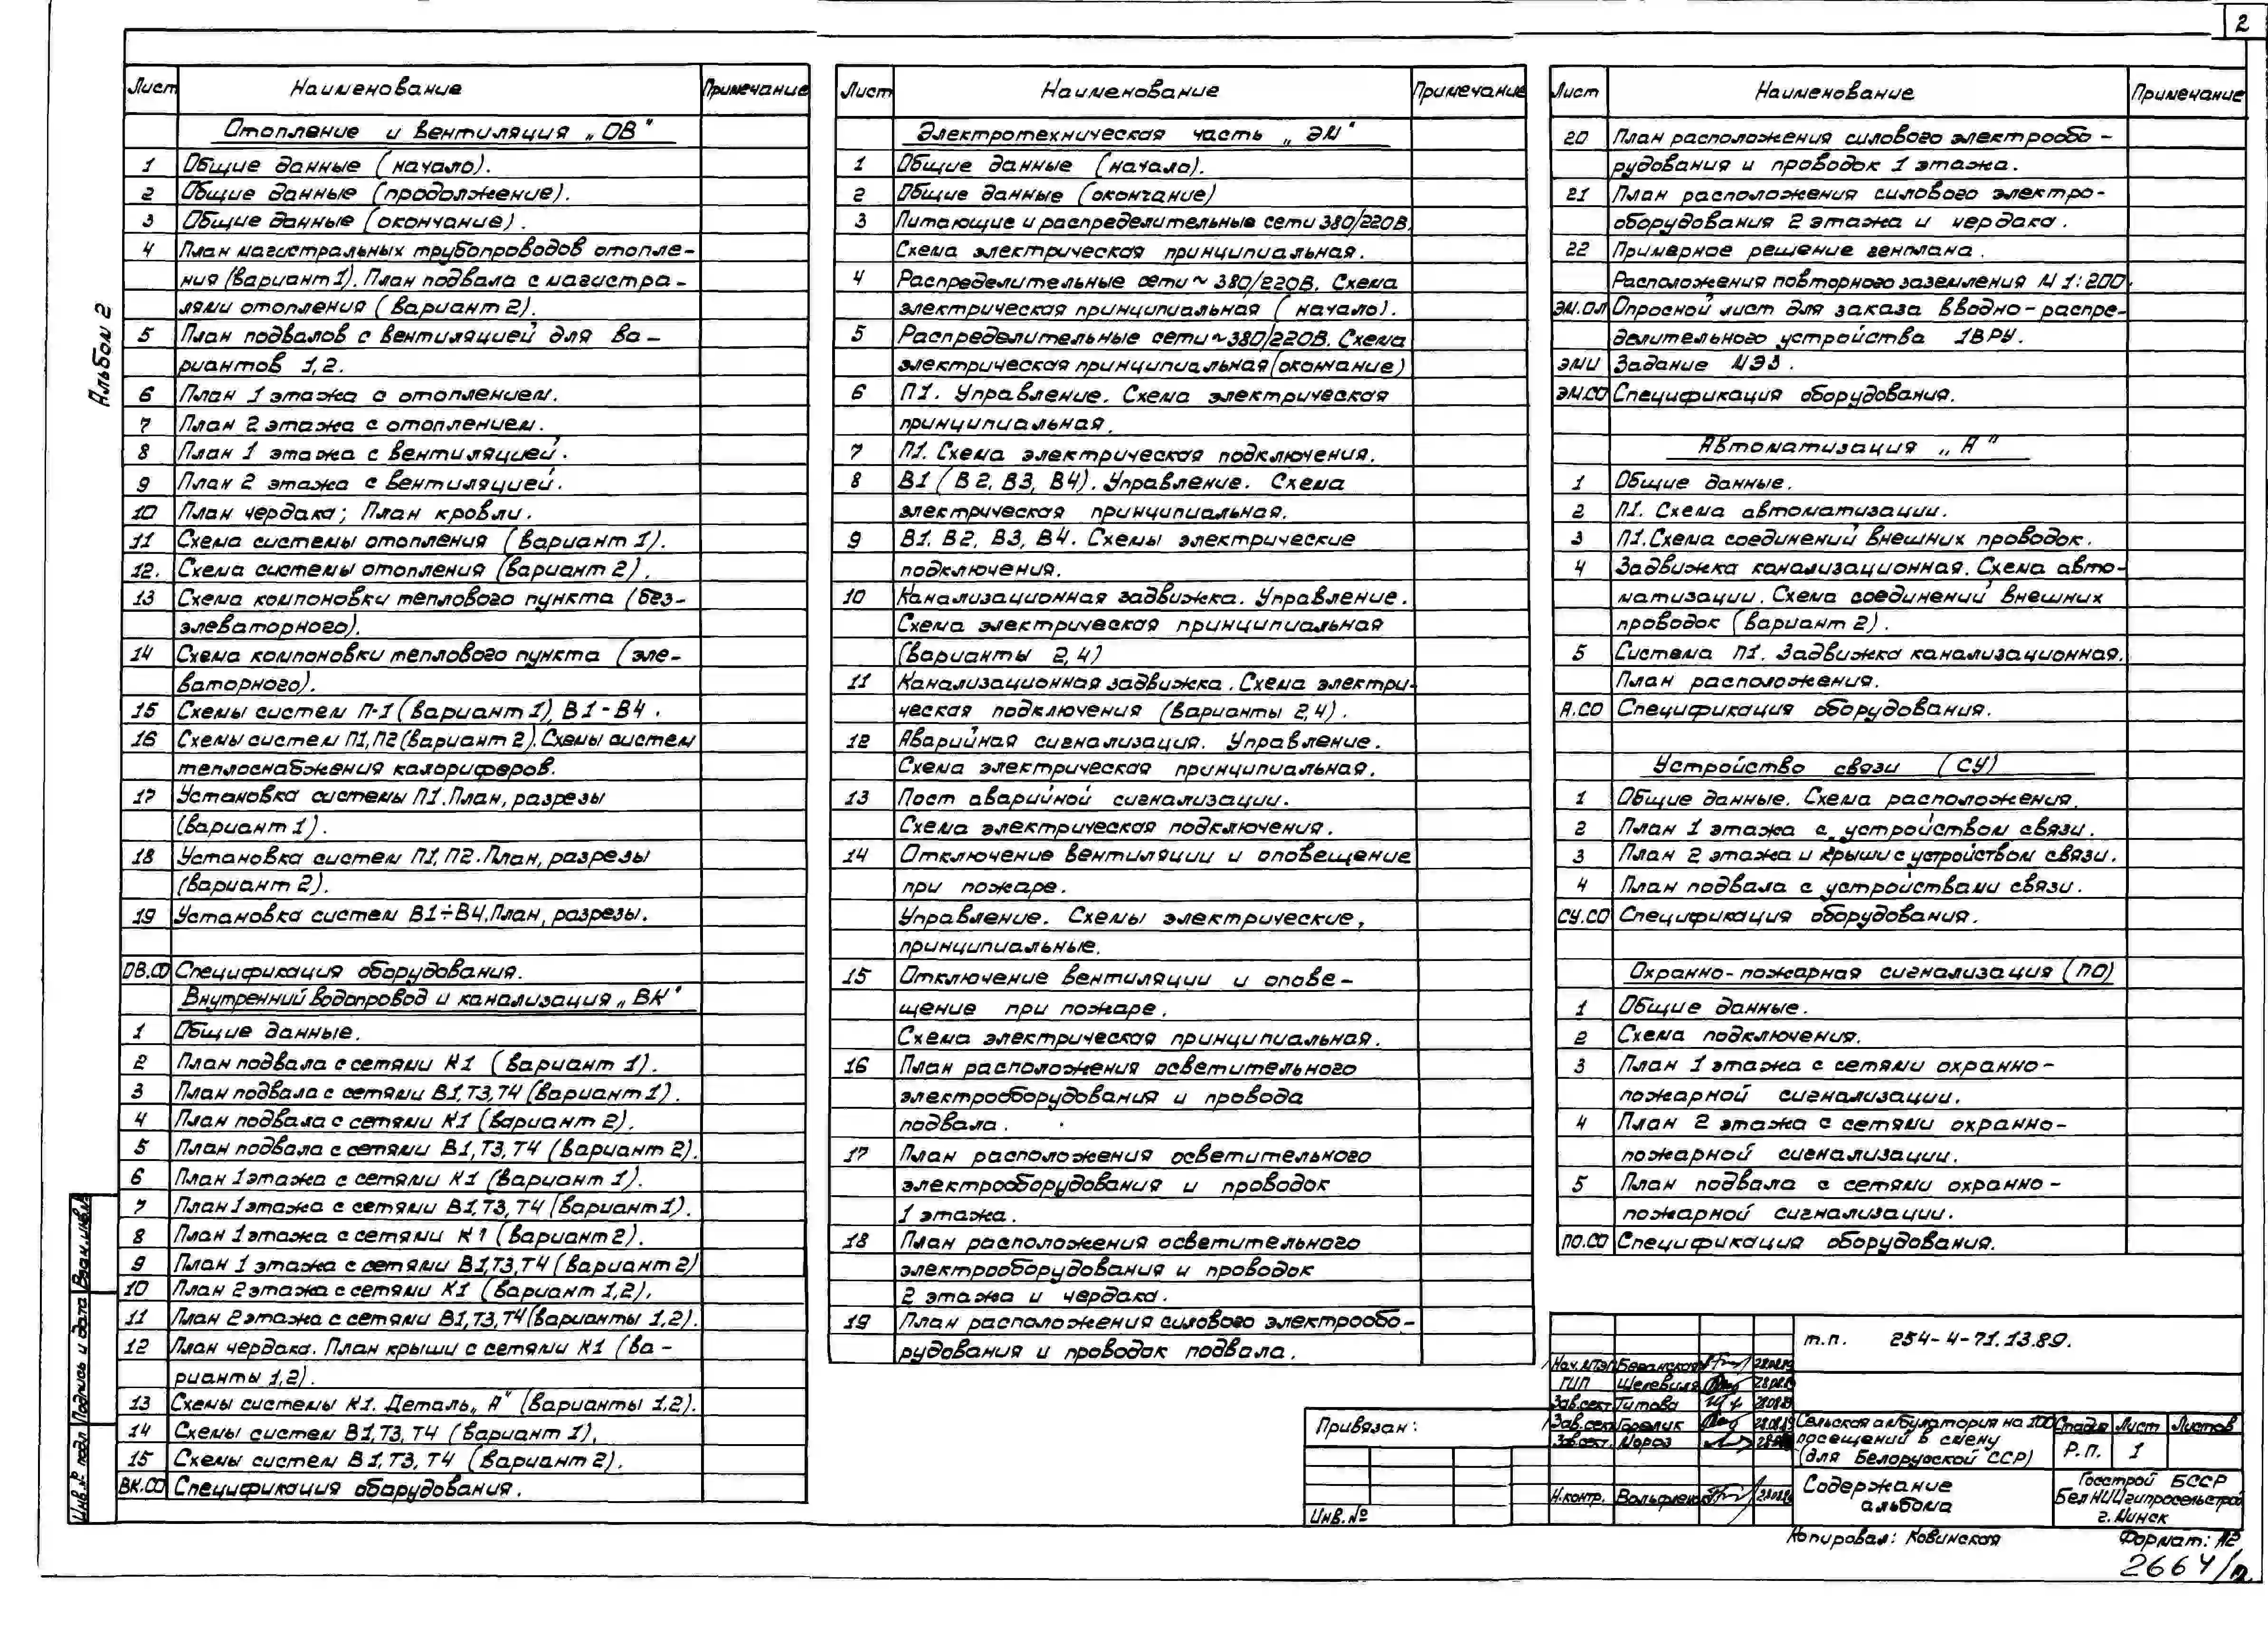 2
Альбом 2
Лист Наименование Примечание
Отопление и вентиляция „ОВ“
1 Общие данные (начало).
2 Общие данные (продолжение).
3 Общие данные (окончание).
4 План магистральных трубопроводов отопле-
ния (вариант 1). План подвала с магистра-
лями отопления (вариант 2).
5 План подвалов с вентиляцией для ва-
риантов 1,2.
6 План 1 этажа с отоплением.
7 План 2 этажа с отоплением.
8 План 1 этажа с вентиляцией.
9 План 2 этажа с вентиляцией.
10 План чердака; План кровли.
11 Схема системы отопления (вариант 1).
12. Схема системы отопления (вариант 2).
13 Схема компоновки теплового пункта (без-
элеваторного).
14 Схема компоновки теплового пункта (эле-
ваторного).
15 Схемы систем П-1 (вариант 1), В1-В4.
16 Схемы систем П1, П2 (вариант 2). Схемы систем
теплоснабжения калориферов.
17 Установка системы П1. План, разрезы
(вариант 1).
18 Установка систем П1, П2. План, разрезы
(вариант 2).
19 Установка систем В1÷В4. План, разрезы.
ОВ.СО Спецификация оборудования.
Внутренний водопровод и канализация „ВК“
1 Общие данные.
2 План подвала с сетями К1 (вариант 1).
3 План подвала с сетями В1, Т3, Т4 (вариант 1).
4 План подвала с сетями К1 (вариант 2).
5 План подвала с сетями В1, Т3, Т4 (вариант 2).
6 План 1 этажа с сетями К1 (вариант 1).
7 План 1 этажа с сетями В1, Т3, Т4 (вариант 1).
8 План 1 этажа с сетями К1 (вариант 2).
9 План 1 этажа с сетями В1, Т3, Т4 (вариант 2)
10 План 2 этажа с сетями К1 (вариант 1,2).
11 План 2 этажа с сетями В1, Т3, Т4 (варианты 1,2).
12 План чердака. План крыши с сетями К1 (ва-
рианты 1,2).
13 Схемы системы К1. Деталь „А“ (варианты 1,2).
14 Схемы систем В1, Т3, Т4 (вариант 1),
15 Схемы систем В1, Т3, Т4 (вариант 2).
ВК.СО Спецификация оборудования.
Лист Наименование Примечание
Электротехническая часть „ЭМ“
1 Общие данные (начало).
2 Общие данные (окончание)
3 Питающие и распределительные сети 380/220В.
Схема электрическая принципиальная.
4 Распределительные сети ~ 380/220В. Схема
электрическая принципиальная (начало).
5 Распределительные сети ~380/220В. Схема
электрическая принципиальная (окончание)
6 П1. Управление. Схема электрическая
принципиальная.
7 П1. Схема электрическая подключения.
8 В1 (В2, В3, В4). Управление. Схема
электрическая принципиальная.
9 В1. В2, В3, В4. Схемы электрические
подключения.
10 Канализационная задвижка. Управление.
Схема электрическая принципиальная
(варианты 2,4)
11 Канализационная задвижка. Схема электри-
ческая подключения (варианты 2,4).
12 Аварийная сигнализация. Управление.
Схема электрическая принципиальная.
13 Пост аварийной сигнализации.
Схема электрическая подключения.
14 Отключение вентиляции и оповещение
при пожаре.
Управление. Схемы электрические,
принципиальные.
15 Отключение вентиляции и опове-
щение при пожаре.
Схема электрическая принципиальная.
16 План расположения осветительного
электрооборудования и провода
подвала.
17 План расположения осветительного
электрооборудования и проводок
1 этажа.
18 План расположения осветительного
электрооборудования и проводок
2 этажа и чердака.
19 План расположения силового электрообо-
рудования и проводок подвала.
Лист Наименование Примечание
20 План расположения силового электрообо-
рудования и проводок 1 этажа.
21 План расположения силового электро-
оборудования 2 этажа и чердака.
22 Примерное решение генплана.
Расположения повторного заземления М 1:200.
ЭМ.ОЛ Опросной лист для заказа вводно-распре-
делительного устройства 1ВРУ.
ЭМИ Задание МЭЗ.
ЭМ.СО Спецификация оборудования.
Автоматизация „А“
1 Общие данные.
2 П1. Схема автоматизации.
3 П1. Схема соединений внешних проводок.
4 Задвижка канализационная. Схема авто-
матизации. Схема соединений внешних
проводок (вариант 2).
5 Система П1. Задвижка канализационная.
План расположения.
А.СО Спецификация оборудования.
Устройство связи (СУ)
1 Общие данные. Схема расположения.
2 План 1 этажа с устройством связи.
3 План 2 этажа и крыши с устройством связи.
4 План подвала с устройствами связи.
СУ.СО Спецификация оборудования.
Охранно-пожарная сигнализация (ПО)
1 Общие данные.
2 Схема подключения.
3 План 1 этажа с сетями охранно-
пожарной сигнализации.
4 План 2 этажа с сетями охранно-
пожарной сигнализации.
5 План подвала с сетями охранно-
пожарной сигнализации.
ПО.СО Спецификация оборудования.
т.п. 254-4-71.13.89.
Нач. МТЭП
ГИП
Зав.сект. Титова
Зав.сект. Горелик
Зав.сект. Мороз
Н.контр.
Привязан:
Инв.№
Сельская амбулатория на 100
посещений в смену
(для Белорусской ССР)
Стадия Лист Листов
Р.П. 1
Содержание
альбома
Госстрой БССР
БелНИИгипросельстрой
г. Минск
Копировал: Ковинская Формат: А2
2664/2
Инв.№ подл Подпись и дата Взам.инв.№